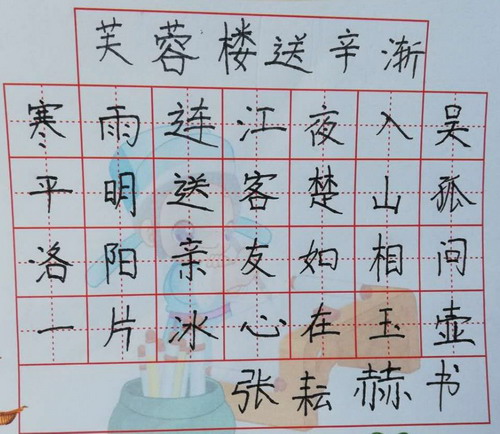 芙蓉楼送辛渐
寒雨连江夜入吴
平明送客楚山孤
洛阳亲友如相问
一片冰心在玉壶
张耘赫书